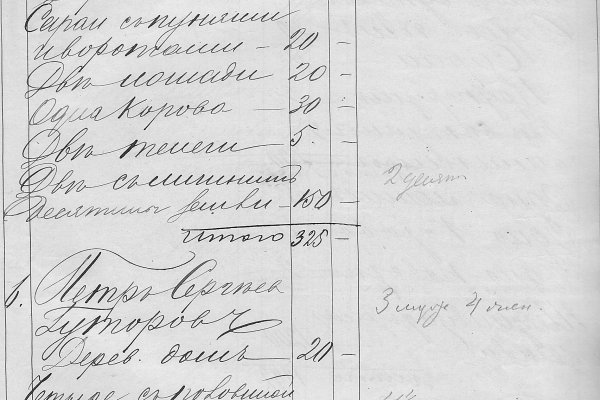 Сарай съ пунями
и воротами — 20 —
Двѣ лошади 20 —
Одна корова — 30 —
Двѣ телеги 5. —
Двѣ съ
Десятины земли — 150 — 2 десят.
Итого 325 —
6. Петръ Сергѣев
Гуторовъ 3 муж 4 жен.
Дерев. домъ — 20 —